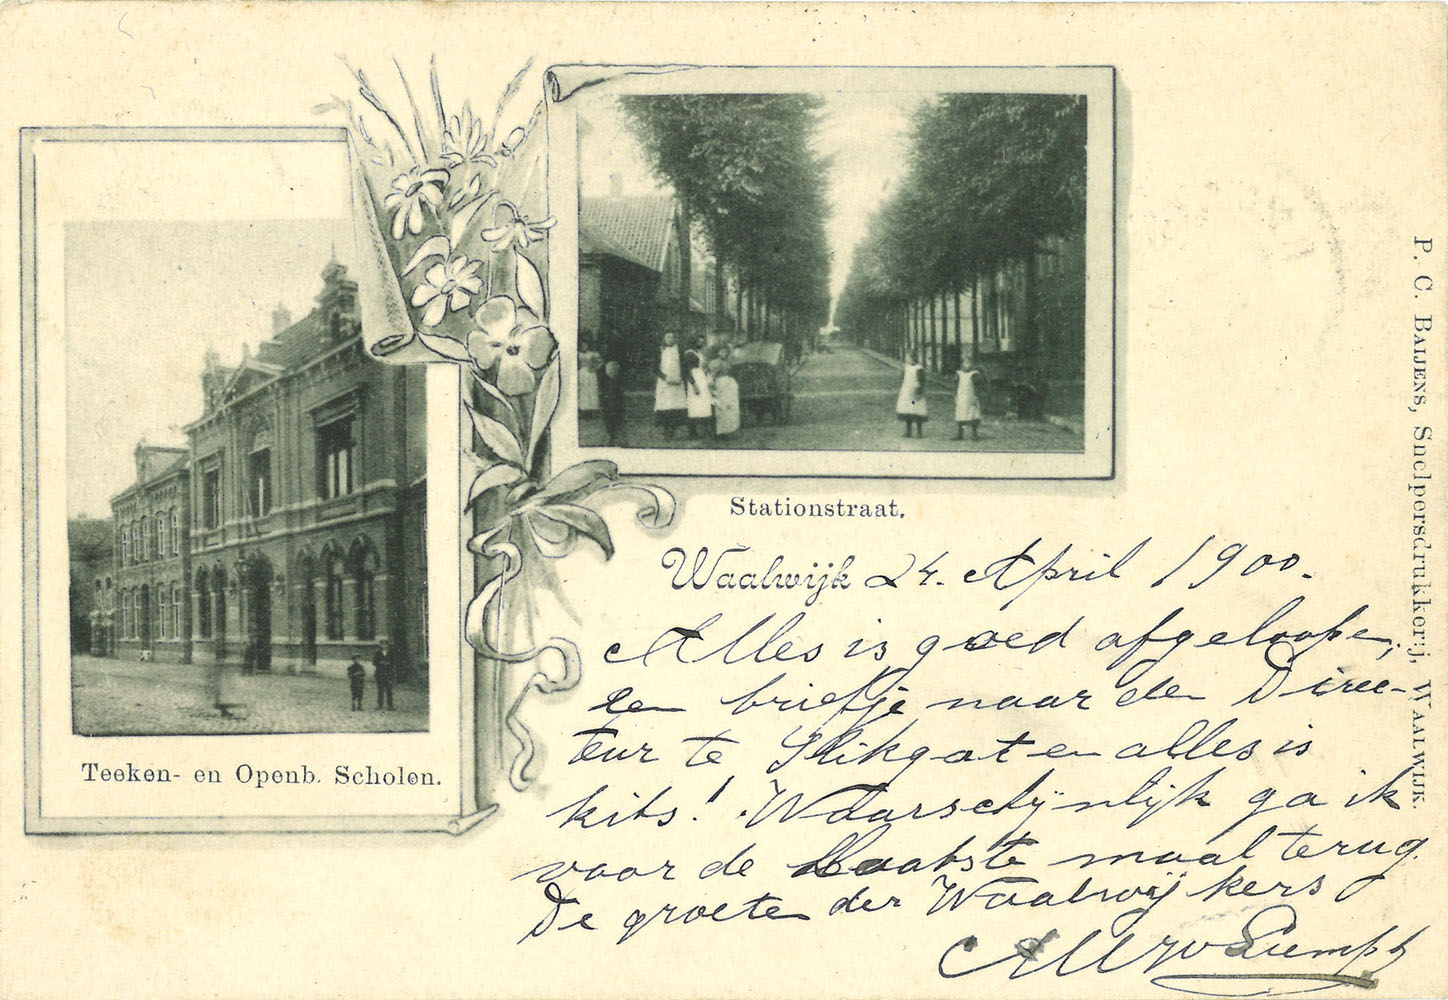 Stationstraat.
Teeken- en Openb. Scholen.
Waalwijk 24. April 1900.
Alles is goed afgeloopen,
een briefje naar den Direc-
teur te Slikgat en alles is
kits! Waarschijnlijk ga ik
voor de laatste maal terug.
De groeten der Waalwijkers
P. C. Baijens, Snelpersdrukkerij, Waalwijk.